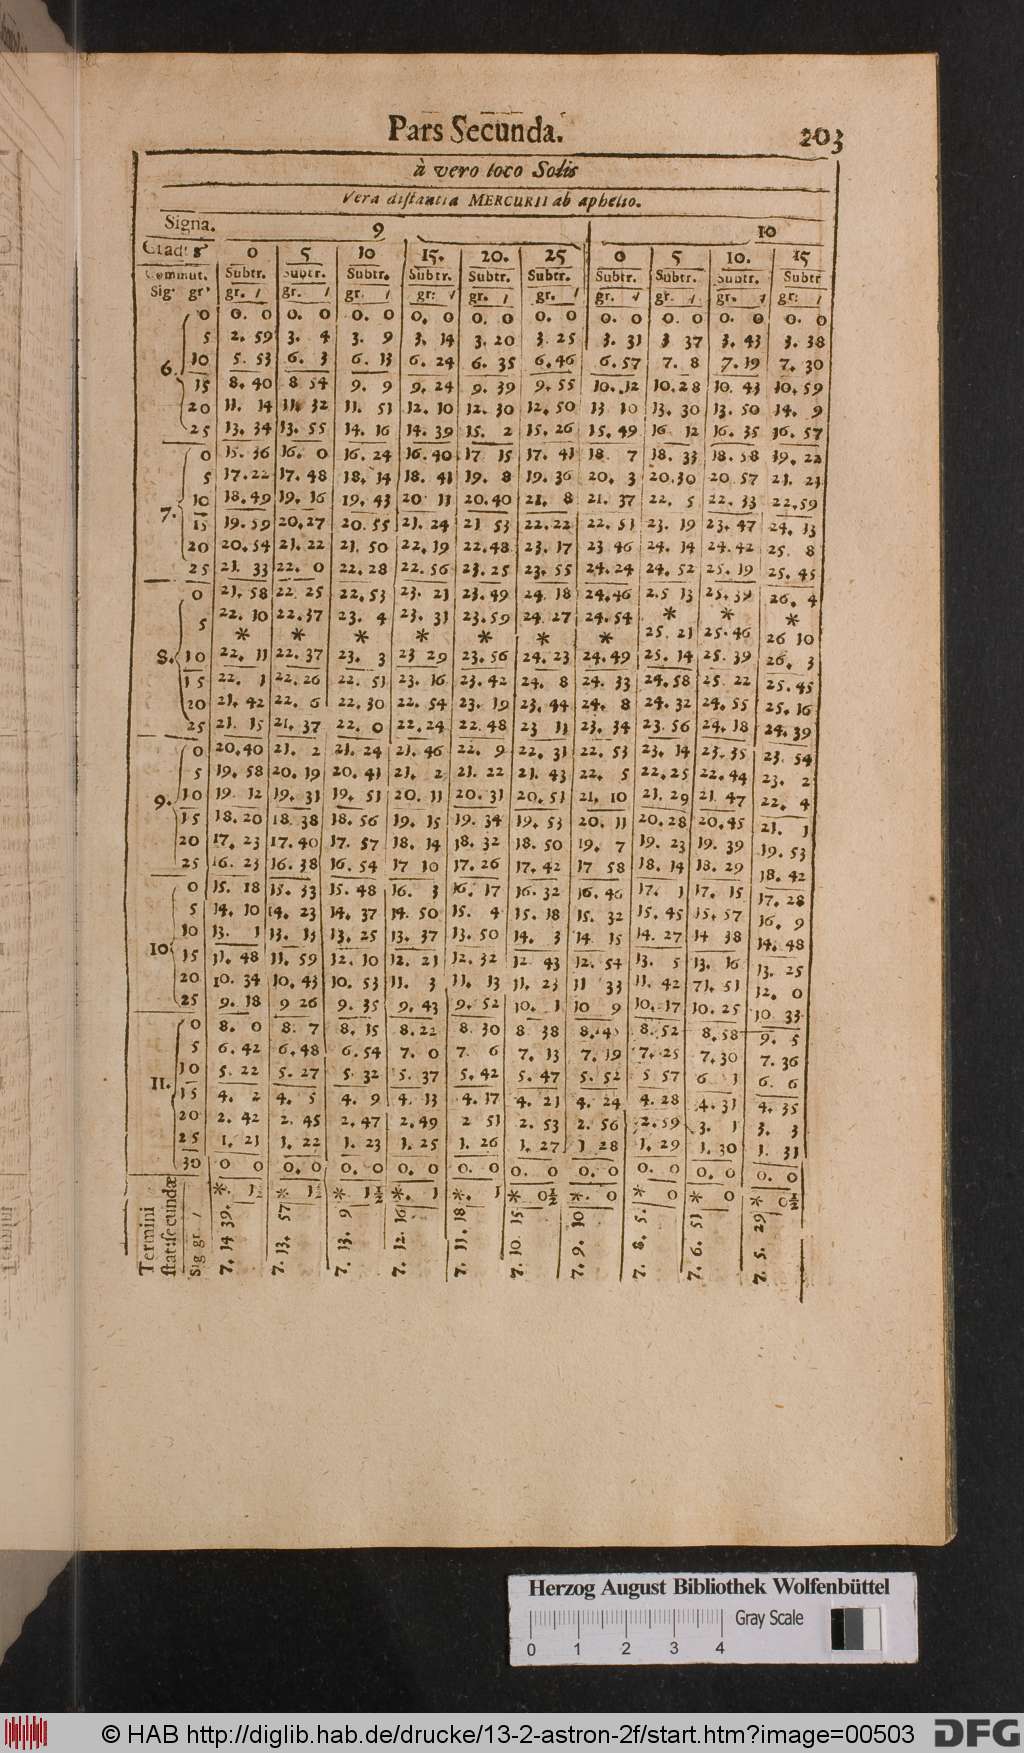 Pars Secunda. 203
à vero loco Solis
Vera distantia MERCURII ab aphelio.
Signa. 9 10
Grad: 0 5 10 15. 20. 25 0 5 10. 15
Commut. Subtr. Subtr. Subtr. Subtr. Subtr. Subtr. Subtr. Subtr. Subtr. Subtr
Sig. gr. gr. ı gr. ı gr. ı gr: ı gr. ı gr. ı gr. ı gr. ı gr. ı gr: ı
0 0. 0 0. 0 0. 0 0. 0 0. 0 0. 0 0. 0 0. 0 0. 0 0. 0
5 2. 59 3. 4 3. 9 3. 14 3. 20 3. 25 3. 31 3 37 3. 43 3. 38
6. 10 5. 53 6. 3 6. 13 6. 24 6. 35 6. 46 6. 57 7. 8 7. 19 7. 30
15 8. 40 8 54 9. 9 9. 24 9. 39 9. 55 10. 12 10. 28 10. 43 10. 59
20 11. 14 11. 32 11. 51 12. 10 12. 30 12. 50 13 10 13. 30 13. 50 14. 9
25 13. 34 13. 55 14. 16 14. 39 15. 2 15. 26 15. 49 16 12 16. 35 16. 57
0 15. 36 16. 0 16. 24 16. 40 17 15 17. 41 18. 7 18. 33 18. 58 19. 22
5 17. 22 17. 48 18. 14 18. 41 19. 8 19. 36 20. 3 20. 30 20 57 21. 23
7. 10 18. 49 19. 16 19. 43 20 11 20. 40 21. 8 21. 37 22. 5 22. 33 22. 59
15 19. 59 20. 27 20. 55 21. 24 21 53 22. 22 22. 51 23. 19 23. 47 24. 13
20 20. 54 21. 22 21. 50 22. 19 22. 48 23. 17 23 46 24. 14 24. 42 25. 8
25 21. 33 22. 0 22. 28 22. 56 23. 25 23. 55 24. 24 24. 52 25. 19 25. 45
0 21. 58 22 25 22. 53 23. 21 23. 49 24. 18 24. 46 2.5 13 25. 39 26. 4
5 22. 10 22. 37 23. 4 23. 31 23. 59 24. 27 24. 54 * * *
* * * * * * * 25. 21 25. 46 26 10
8. 10 22. 11 22. 37 23. 3 23 29 23. 56 24. 23 24. 49 25. 14 25. 39 26. 3
15 22. 1 22. 26 22. 51 23. 16 23. 42 24. 8 24. 33 24. 58 25. 22 25. 45
20 21. 42 22. 6 22. 30 22. 54 23. 19 23. 44 24. 8 24. 32 24. 55 25. 16
25 21. 15 21. 37 22. 0 22. 24 22. 48 23 11 23. 34 23. 56 24. 18 24. 39
0 20. 40 21. 2 21. 24 21. 46 22. 9 22. 31 22. 53 23. 14 23. 35 23. 54
5 19. 58 20. 19 20. 41 21. 2 21. 22 21. 43 22. 5 22. 25 22. 44 23. 2
9. 10 19. 12 19. 31 19. 51 20. 11 20. 31 20. 51 21. 10 21. 29 21. 47 22. 4
15 18. 20 18. 38 18. 56 19. 15 19. 34 19. 53 20. 11 20. 28 20. 45 21. 1
20 17. 23 17. 40 17. 57 18. 14 18. 32 18. 50 19. 7 19. 23 19. 39 19. 53
25 16. 23 16. 38 16. 54 17 10 17. 26 17. 42 17 58 18. 14 18. 29 18. 42
0 15. 18 15. 33 15. 48 16. 3 16. 17 16. 32 16. 46 17. 1 17. 15 17. 28
5 14. 10 14. 23 14. 37 14. 50 15. 4 15. 18 15. 32 15. 45 15. 57 16. 9
10 10 13. 1 13. 13 13. 25 13. 37 13. 50 14. 3 14 15 14. 27 14 38 14. 48
15 11. 48 11. 59 12. 10 12. 21 12. 32 12 43 12. 54 13. 5 13. 16 13. 25
20 10. 34 10. 43 10. 53 11. 3 11. 13 11. 23 11 33 11. 42 71. 51 12. 0
25 9. 18 9 26 9. 35 9. 43 9. 52 10. 1 10 9 10. 17 10. 25 10 33
0 8. 0 8. 7 8. 15 8. 22 8. 30 8 38 8. 45 8. 52 8. 58 9. 5
5 6. 42 6. 48 6. 54 7. 0 7. 6 7. 13 7. 19 7. 25 7. 30 7. 36
11. 10 5. 22 5. 27 5. 32 5. 37 5. 42 5. 47 5. 52 5 57 6 1 6. 6
15 4. 2 4. 5 4. 9 4. 13 4. 17 4. 21 4. 24 4. 28 4. 31 4. 35
20 2. 42 2. 45 2. 47 2. 49 2 51 2. 53 2. 56 2. 59 3. 1 3. 3
25 1. 21 1. 22 1. 23 1. 25 1. 26 1. 27 1 28 1. 29 1. 30 1. 31
30 0 0 0. 0 0. 0 0. 0 0. 0 0. 0 0. 0 0. 0 0. 0 0. 0
*. 1½ * 1½ * 1½ *. 1 *. 1 * 0½ *. 0 * 0 * 0 * 0½
Termini
stat: secundæ
Sig gr. ı 7. 14 39. 7. 13. 57 7. 13. 9 7. 12. 16 7. 11. 18 7. 10. 15 7. 9. 10 7. 8. 5. 7. 6. 51 7. 5. 29
Herzog August Bibliothek Wolfenbüttel
Gray Scale
0 1 2 3 4
© HAB http://diglib.hab.de/drucke/13-2-astron-2f/start.htm?image=00503 DFG